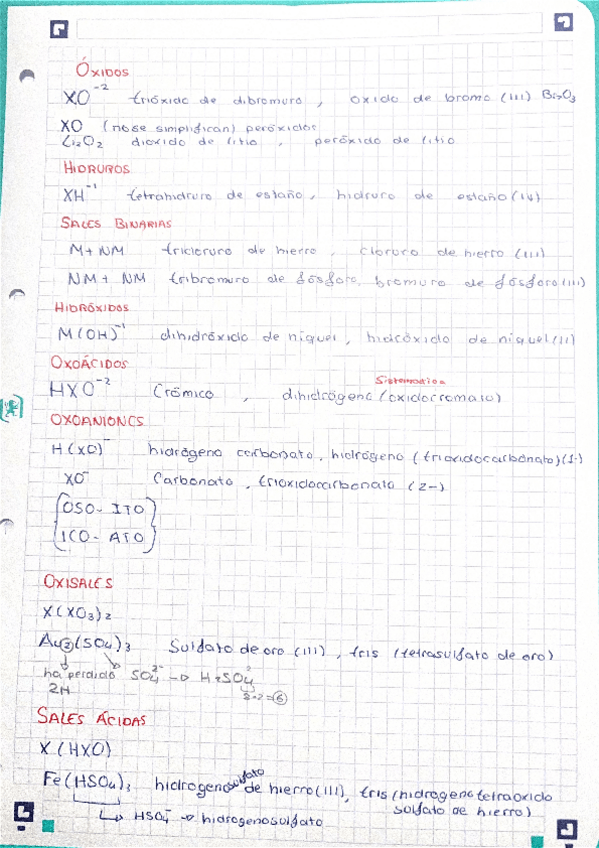 ÓXIDOS
XO⁻² trióxido de dibromuro, oxido de bromo (III) Bi₂O₃
XO (no se simplifican) peróxidos
Li₂O₂ dioxido de litio, peróxido de litio
HIDRUROS
XH⁻¹ tetrahidruro de estaño, hidruro de estaño (IV)
SALES BINARIAS
M + NM tricloruro de hierro, cloruro de hierro (III)
NM + NM tribromuro de fósforo, bromuro de fósforo (III)
HIDRÓXIDOS
M(OH)⁻¹ dihidróxido de niquel, hidróxido de niquel (II)
OXOÁCIDOS
Sistematica
HXO⁻² Crómico, dihidrógeno (oxidocromato)
OXOANIONES
H(XO)⁻ hidrógeno carbonato, hidrógeno (trioxidocarbonato)(1-)
XO⁻ Carbonato, trioxidocarbonato (2-)
OSO - ITO
ICO - ATO
OXISALES
X(XO₃)₂
Au₂(SO₄)₃ Sulfato de oro (III), tris (tetrasulfato de oro)
ha perdido SO₄²⁻ → H₂SO₄
2H 3·2=6
SALES ÁCIDAS
X(HXO)
Fe(HSO₄)₃ hidrogenosulfato de hierro (III), tris (hidrogenotetraoxido
sulfato de hierro)
↳ HSO₄⁻ → hidrogenosulfato